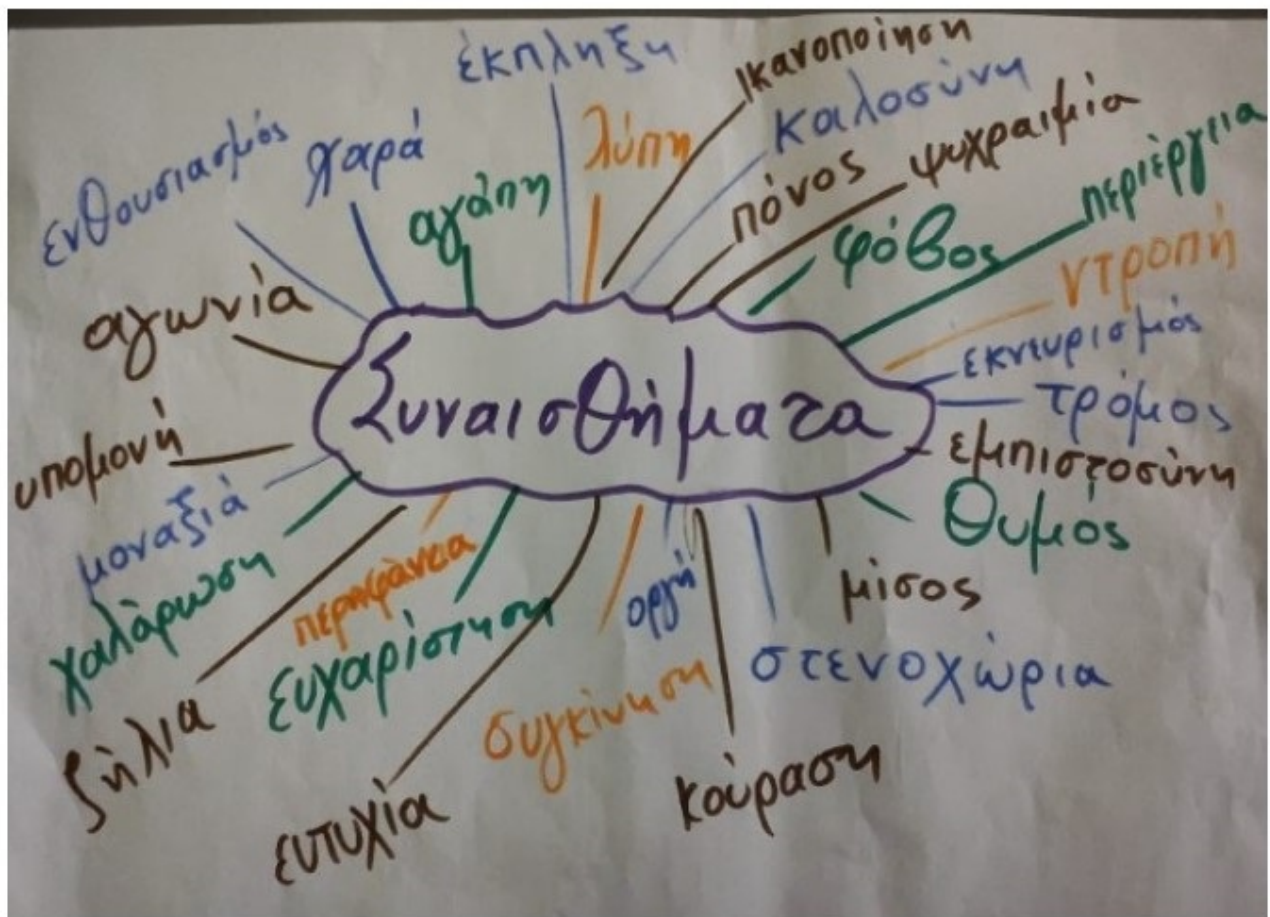 Συναισθήματα
ενθουσιασμός
χαρά
αγάπη
έκπληξη
λύπη
Ικανοποίηση
καλοσύνη
πόνος
ψυχραιμία
φόβος
περιέργεια
ντροπή
εκνευρισμός
τρόμος
εμπιστοσύνη
θυμός
μίσος
στενοχώρια
κούραση
οργή
συγκίνηση
ευτυχία
ευχαρίστηση
περηφάνεια
ζήλια
χαλάρωση
μοναξιά
υπομονή
αγωνία